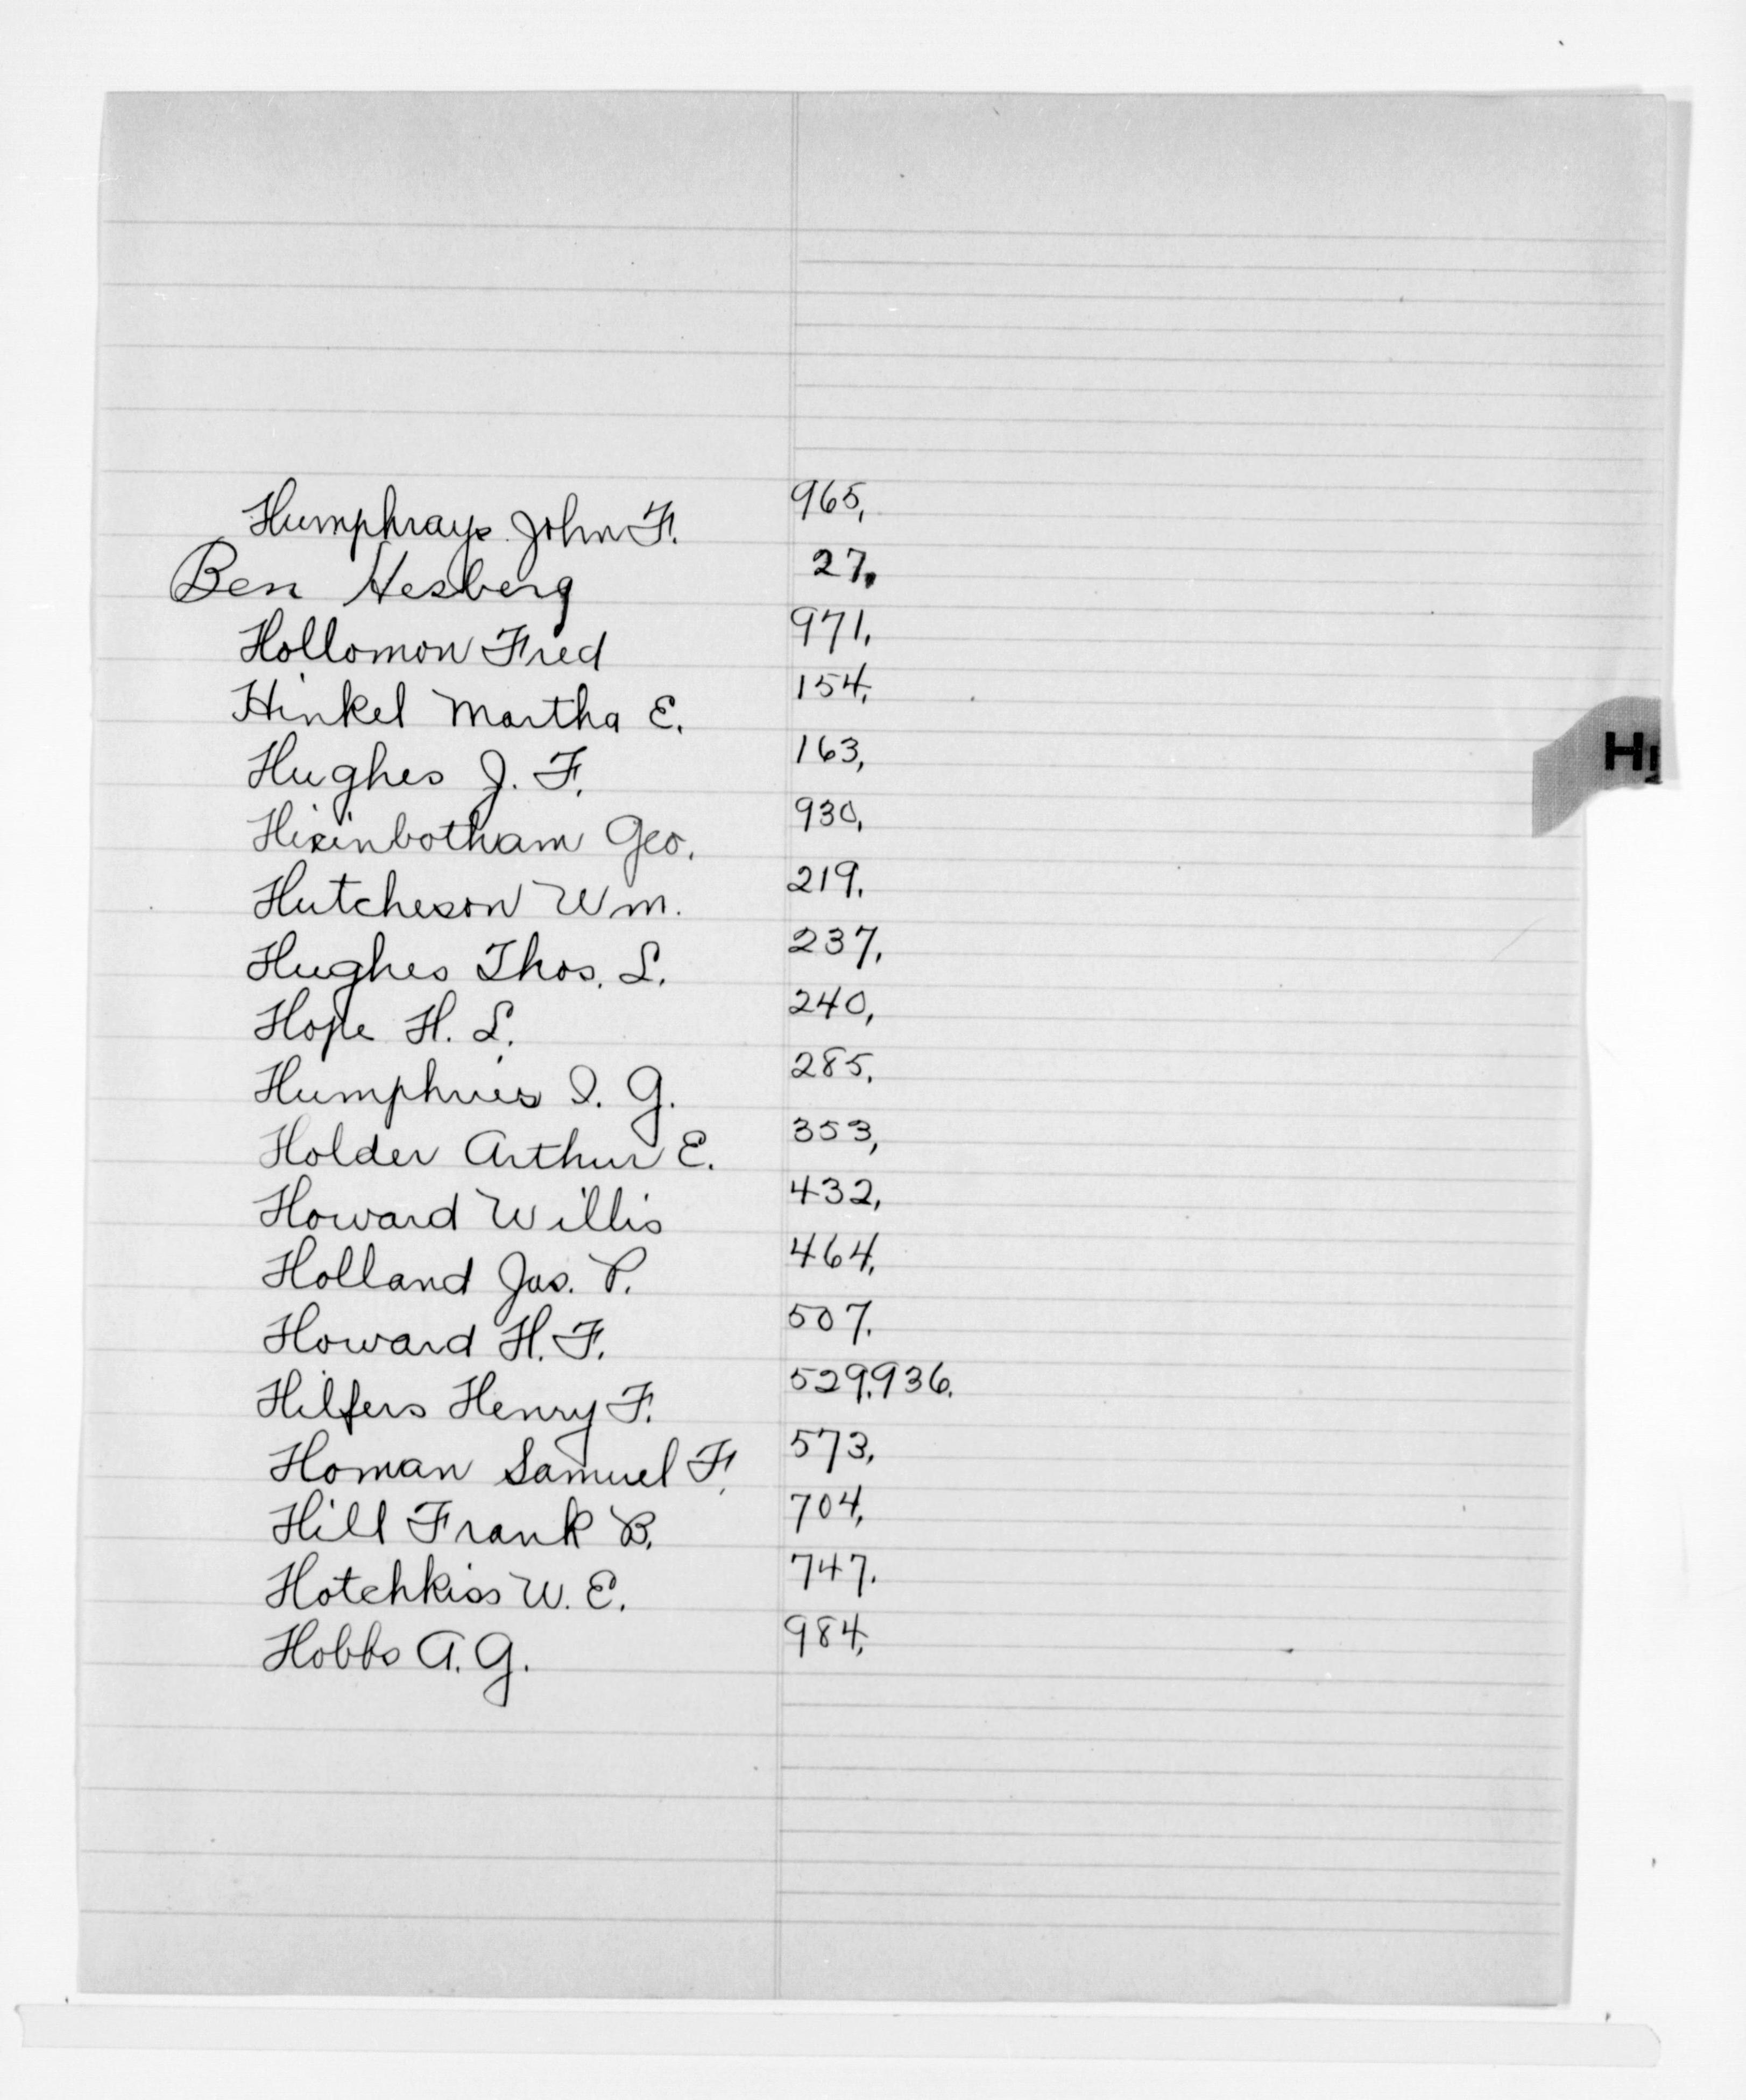 Humphrays John F. 965,
Ben Hesberg 27,
Hollomon Fred 971,
Hinkel Martha E. 154,
Hughes J. F. 163,
Hixinbotham Geo. 930,
Hutcheson Wm. 219,
Hughes Thos. L. 237,
Hope H. L. 240,
Humphries I. G. 285,
Holder Arthur E. 353,
Howard Willis 432,
Holland Jas. P. 464,
Howard H. F. 507.
Hilfers Henry F. 529,936.
Homan Samuel F. 573,
Hill Frank B. 704,
Hotchkiss W. E. 747.
Hobbs A. G. 984,